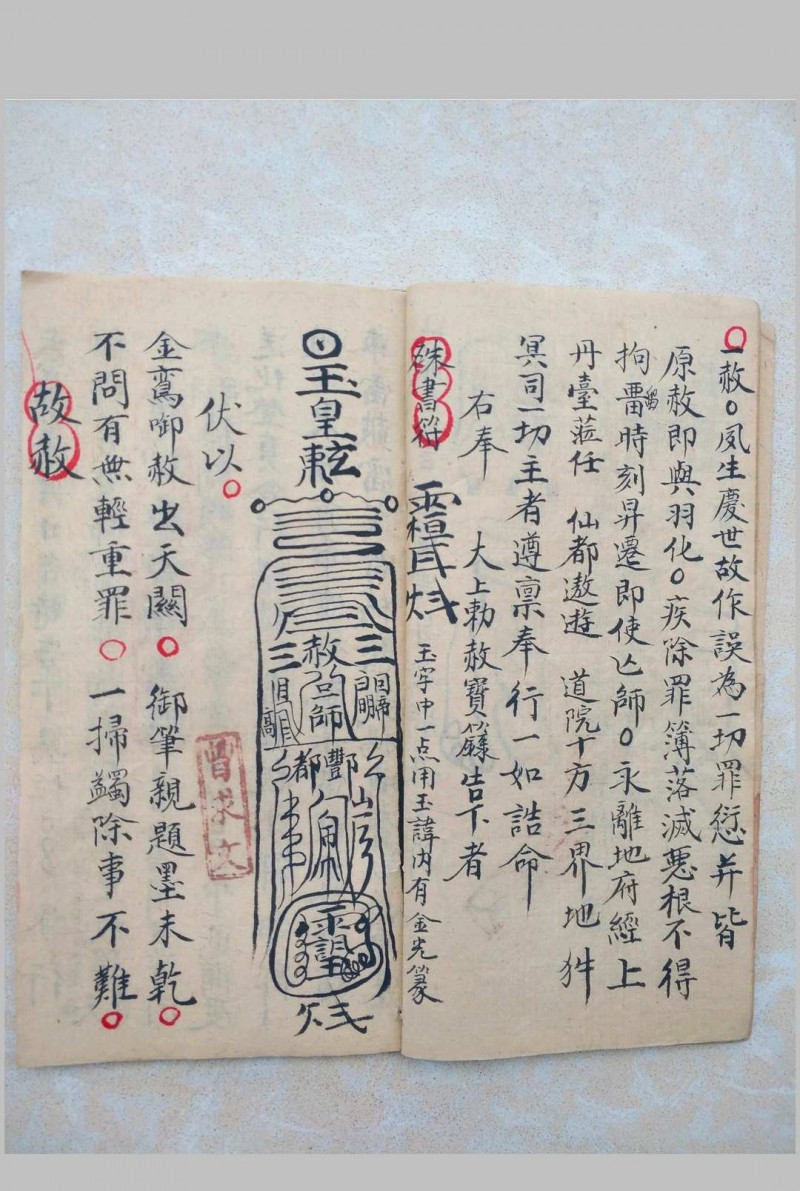 一赦。夙生慶世故作誤為一切罪愆并皆
原赦即與羽化。疾除罪簿落滅惡根不得
拘留時刻昇遷即使亾師。永離地府經上
丹臺蒞任 仙都遨遊 道院十方三界地
冥司一切主者遵禀奉行一如誥命
右奉 大上勅赦寶籙告下者
硃書符
玉字中一点用玉諱內有金光篆
玉皇
赦
三 三
師
酆都
伏以。
金鸞啣赦出天闗。御筆親題墨未乾。
不問有無輕重罪。一掃蠲除事不難。
故赦
曾求文